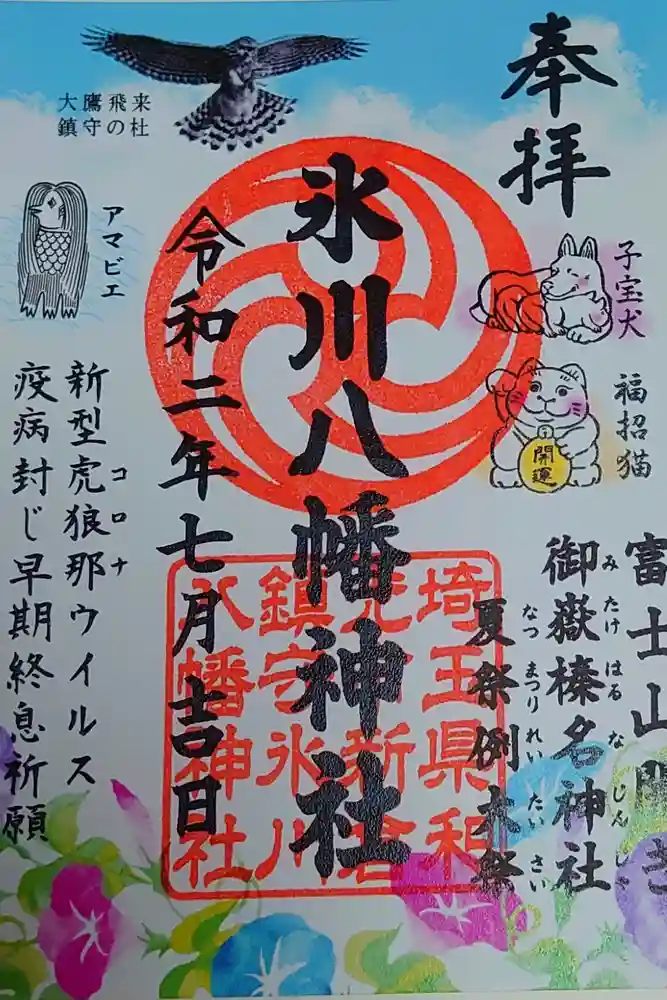 奉拝
子宝犬
福招猫
開運
富士山開き
御嶽榛名神社
みたけはるなじんじゃ
夏祭例大祭
なつまつりれいたいさい
氷川八幡神社
埼玉県和
新
鎮守氷川
八幡神社
令和二年七月吉日
大鷹飛来
鎮守の杜
アマビエ
新型虎狼那ウイルス
コロナ
疫病封じ早期終息祈願